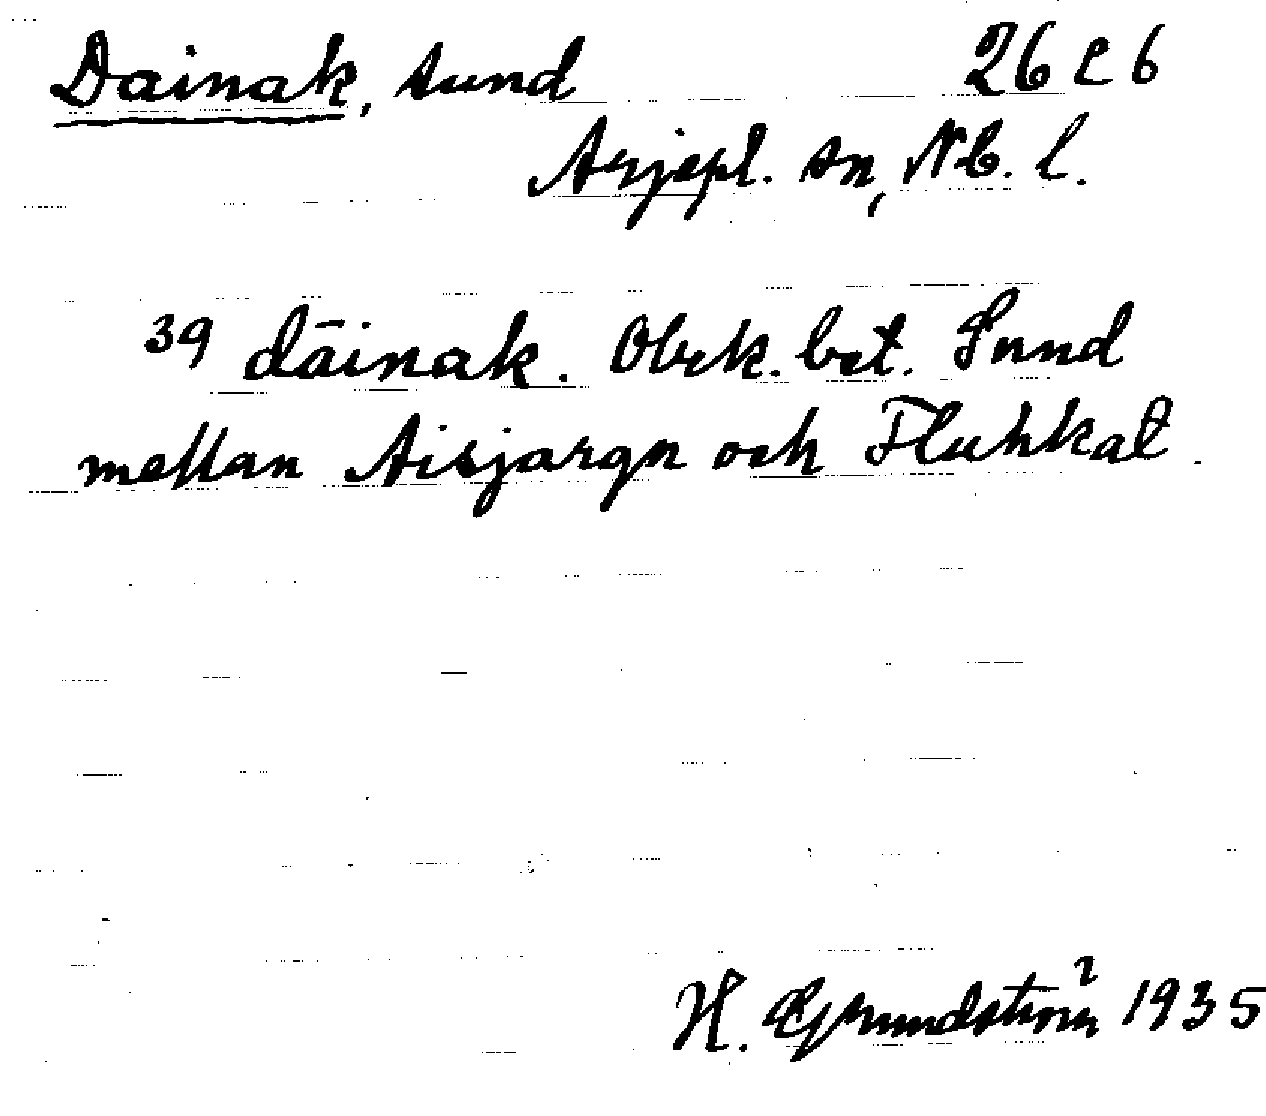 Dainak, sund 26 c 6
Arjepl. sn, Nb. l.
39 dāinak. Obek. bet. Sund
mellan Aisjargn och Fluhkat.
H. Grundström 1935